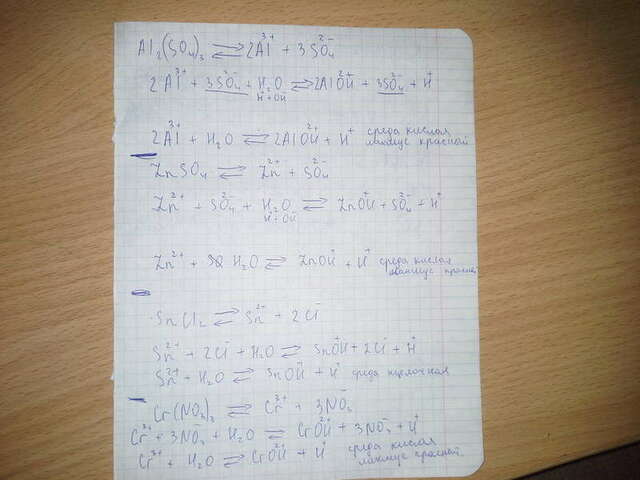 Al₂(SO₄)₃ ⇄ 2Al³⁺ + 3SO₄²⁻
2Al³⁺ + 3SO₄²⁻ + H₂O ⇄ 2AlOH²⁺ + 3SO₄²⁻ + H⁺
H⁺ + OH⁻
2Al³⁺ + H₂O ⇄ 2AlOH²⁺ + H⁺ среда кислая
лакмус красной
ZnSO₄ ⇄ Zn²⁺ + SO₄²⁻
Zn²⁺ + SO₄²⁻ + H₂O ⇄ ZnOH⁺ + SO₄²⁻ + H⁺
H⁺ OH⁻
Zn²⁺ + H₂O ⇄ ZnOH⁺ + H⁺ среда кислая
лакмус красной
SnCl₂ ⇄ Sn²⁺ + 2Cl⁻
Sn²⁺ + 2Cl⁻ + H₂O ⇄ SnOH⁺ + 2Cl⁻ + H⁺
Sn²⁺ + H₂O ⇄ SnOH⁺ + H⁺ среда
Cr(NO₃)₃ ⇄ Cr³⁺ + 3NO₃⁻
Cr³⁺ + 3NO₃⁻ + H₂O ⇄ CrOH²⁺ + 3NO₃⁻ + H⁺
Cr³⁺ + H₂O ⇄ CrOH²⁺ + H⁺ среда кислая
лакмус красной